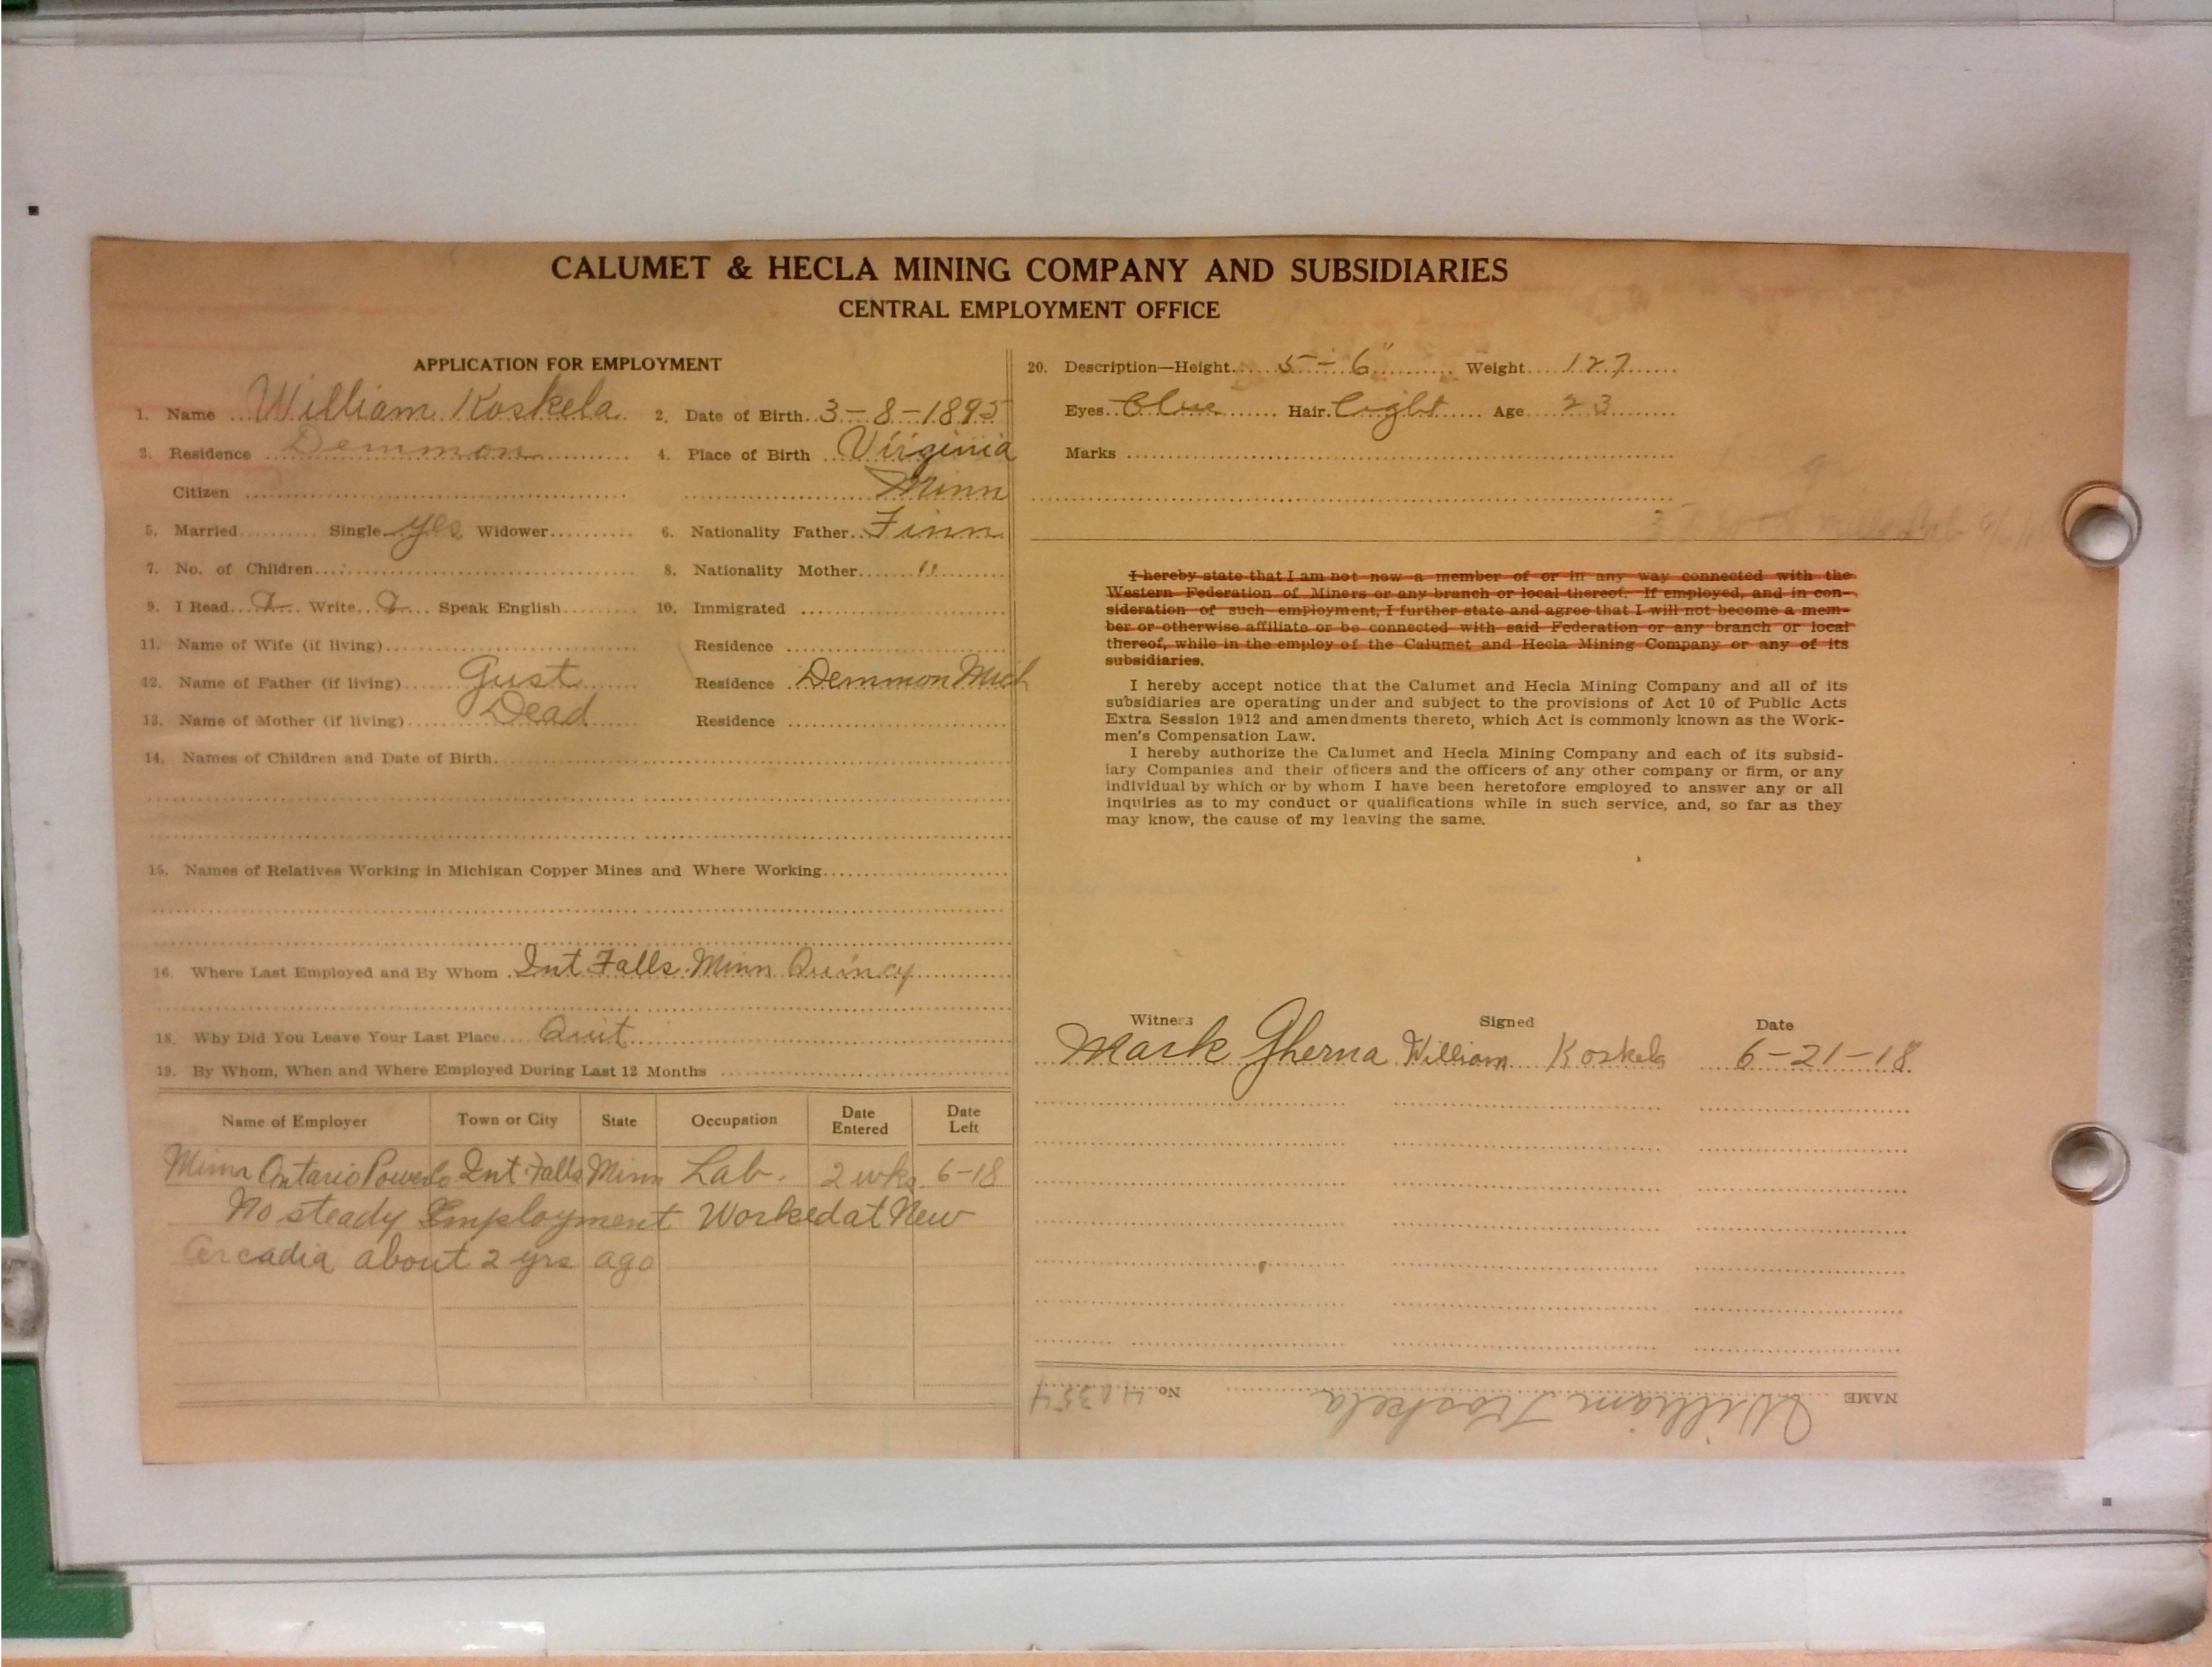 CALUMET & HECLA MINING COMPANY AND SUBSIDIARIES
CENTRAL EMPLOYMENT OFFICE
APPLICATION FOR EMPLOYMENT
1. Name William Koskela 2. Date of Birth 3-8-1895
3. Residence Demmon 4. Place of Birth Virginia
Citizen Minn
5. Married Single yes Widower 6. Nationality Father Finn
7. No. of Children 8. Nationality Mother "
9. I Read Write Speak English 10. Immigrated
11. Name of Wife (if living) Residence
12. Name of Father (if living) Gust Residence Demmon Mich
13. Name of Mother (if living) Dead Residence
14. Names of Children and Date of Birth
15. Names of Relatives Working in Michigan Copper Mines and Where Working
16. Where Last Employed and By Whom Int. Falls Minn Quincy
18. Why Did You Leave Your Last Place Quit
19. By Whom, When and Where Employed During Last 12 Months
Name of Employer Town or City State Occupation Date Entered Date Left
Minn Ontario Power Co Int. Falls Minn Lab. 2 wks. 6-18
No steady Employment Worked at New
Arcadia about 2 yrs ago
20. Description—Height 5-6" Weight 127
Eyes Blue Hair light Age 23
Marks
I hereby state that I am not now a member of or in any way connected with the
Western Federation of Miners or any branch or local thereof. If employed, and in con-
sideration of such employment, I further state and agree that I will not become a mem-
ber or otherwise affiliate or be connected with said Federation or any branch or local
thereof, while in the employ of the Calumet and Hecla Mining Company or any of its
subsidiaries.
I hereby accept notice that the Calumet and Hecla Mining Company and all of its
subsidiaries are operating under and subject to the provisions of Act 10 of Public Acts
Extra Session 1912 and amendments thereto, which Act is commonly known as the Work-
men's Compensation Law.
I hereby authorize the Calumet and Hecla Mining Company and each of its subsid-
iary Companies and their officers and the officers of any other company or firm, or any
individual by which or by whom I have been heretofore employed to answer any or all
inquiries as to my conduct or qualifications while in such service, and, so far as they
may know, the cause of my leaving the same.
Witness Signed Date
Mark Gherna William Koskela 6-21-18
NAME William Koskela No.